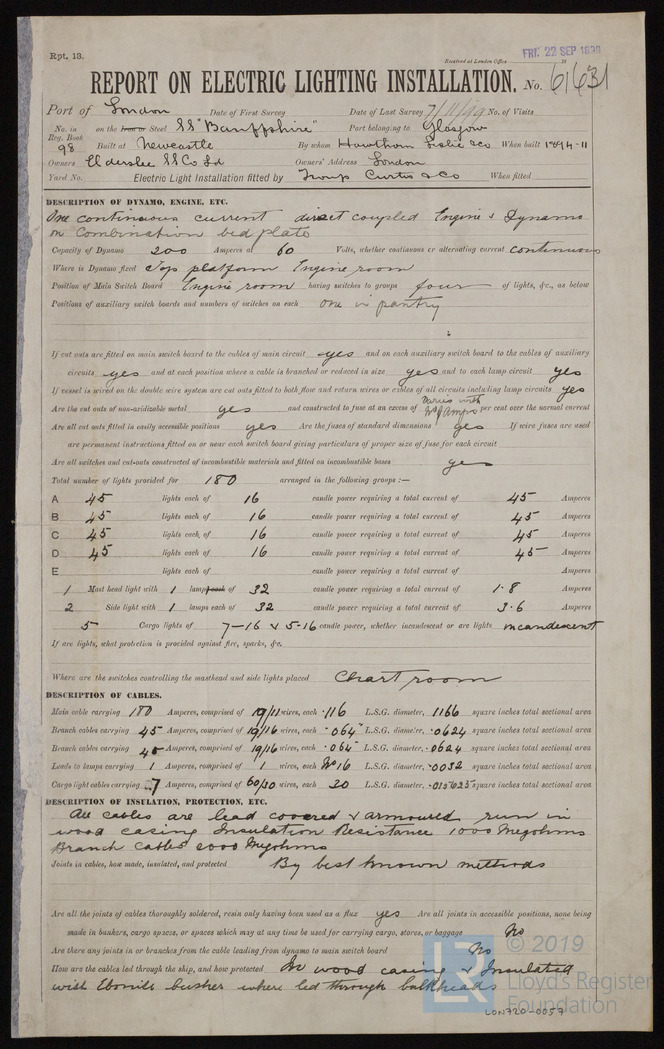 Rpt. 13.
Received at London Office FRI. 22 SEP 18
REPORT ON ELECTRIC LIGHTING INSTALLATION. No. 61631
Port of London Date of First Survey Date of Last Survey 7/11/99 No. of Visits
No. in Reg. Book on the Iron or Steel SS "Banffshire" Port belonging to Glasgow
98 Built at Newcastle By whom Hawthorn Leslie & Co When built 1894-11
Owners Elderslie SS Co Ld Owners' Address London
Yard No. Electric Light Installation fitted by Troup Curtis & Co When fitted
DESCRIPTION OF DYNAMO, ENGINE, ETC.
One continuous current direct coupled Engine & Dynamo
on Combination bed plate
Capacity of Dynamo 200 Amperes at 60 Volts, whether continuous or alternating current continuous
Where is Dynamo fixed Top platform Engine room
Position of Main Switch Board Engine room having switches to groups four of lights, &c., as below
Positions of auxiliary switch boards and numbers of switches on each one in pantry
If cut outs are fitted on main switch board to the cables of main circuit yes and on each auxiliary switch board to the cables of auxiliary
circuits yes and at each position where a cable is branched or reduced in size yes and to each lamp circuit yes
If vessel is wired on the double wire system are cut outs fitted to both flow and return wires or cables of all circuits including lamp circuits yes
Are the cut outs of non-oxidizable metal yes and constructed to fuse at an excess of Varies with Amps per cent over the normal current
Are all cut outs fitted in easily accessible positions yes Are the fuses of standard dimensions yes If wire fuses are used
are permanent instructions fitted on or near each switch board giving particulars of proper size of fuse for each circuit
Are all switches and cut-outs constructed of incombustible materials and fitted on incombustible bases yes
Total number of lights provided for 180 arranged in the following groups :—
A 45 lights each of 16 candle power requiring a total current of 45 Amperes
B 45 lights each of 16 candle power requiring a total current of 45 Amperes
C 45 lights each of 16 candle power requiring a total current of 45 Amperes
D 45 lights each of 16 candle power requiring a total current of 45 Amperes
E lights each of candle power requiring a total current of Amperes
1 Mast head light with 1 lamp each of 32 candle power requiring a total current of 1.8 Amperes
2 Side light with 1 lamps each of 32 candle power requiring a total current of 3.6 Amperes
5 Cargo lights of 7-16 & 5-16 candle power, whether incandescent or arc lights incandescent
If arc lights, what protection is provided against fire, sparks, &c.
Where are the switches controlling the masthead and side lights placed Chart room
DESCRIPTION OF CABLES.
Main cable carrying 180 Amperes, comprised of 19/11 wires, each .116 L.S.G. diameter, .1166 square inches total sectional area
Branch cables carrying 45 Amperes, comprised of 19/16 wires, each .064" L.S.G. diameter, .0624 square inches total sectional area
Branch cables carrying 45 Amperes, comprised of 19/16 wires, each .064" L.S.G. diameter, .0624 square inches total sectional area
Leads to lamps carrying 1 Amperes, comprised of 1 wires, each No 16 L.S.G. diameter, .0032 square inches total sectional area
Cargo light cables carrying 7 Amperes, comprised of 60/30 wires, each 30 L.S.G. diameter, square inches total sectional area
DESCRIPTION OF INSULATION, PROTECTION, ETC.
All cables are lead covered & armoured run in
wood casing Insulation Resistance 1000 Megohms
Branch Cables 2000 Megohms
Joints in cables, how made, insulated, and protected By best known methods
Are all the joints of cables thoroughly soldered, resin only having been used as a flux yes Are all joints in accessible positions, none being
made in bunkers, cargo spaces, or spaces which may at any time be used for carrying cargo, stores, or baggage No
Are there any joints in or branches from the cable leading from dynamo to main switch board No
How are the cables led through the ship, and how protected In wood casing & Insulated
with Ebonite bushes where led through bulkheads
© 2019
Lloyd's Register
Foundation
LON720-0057